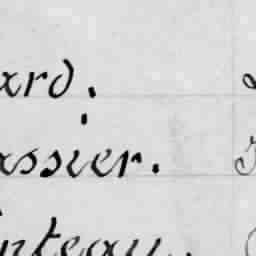 ard.
assier.
nteau.